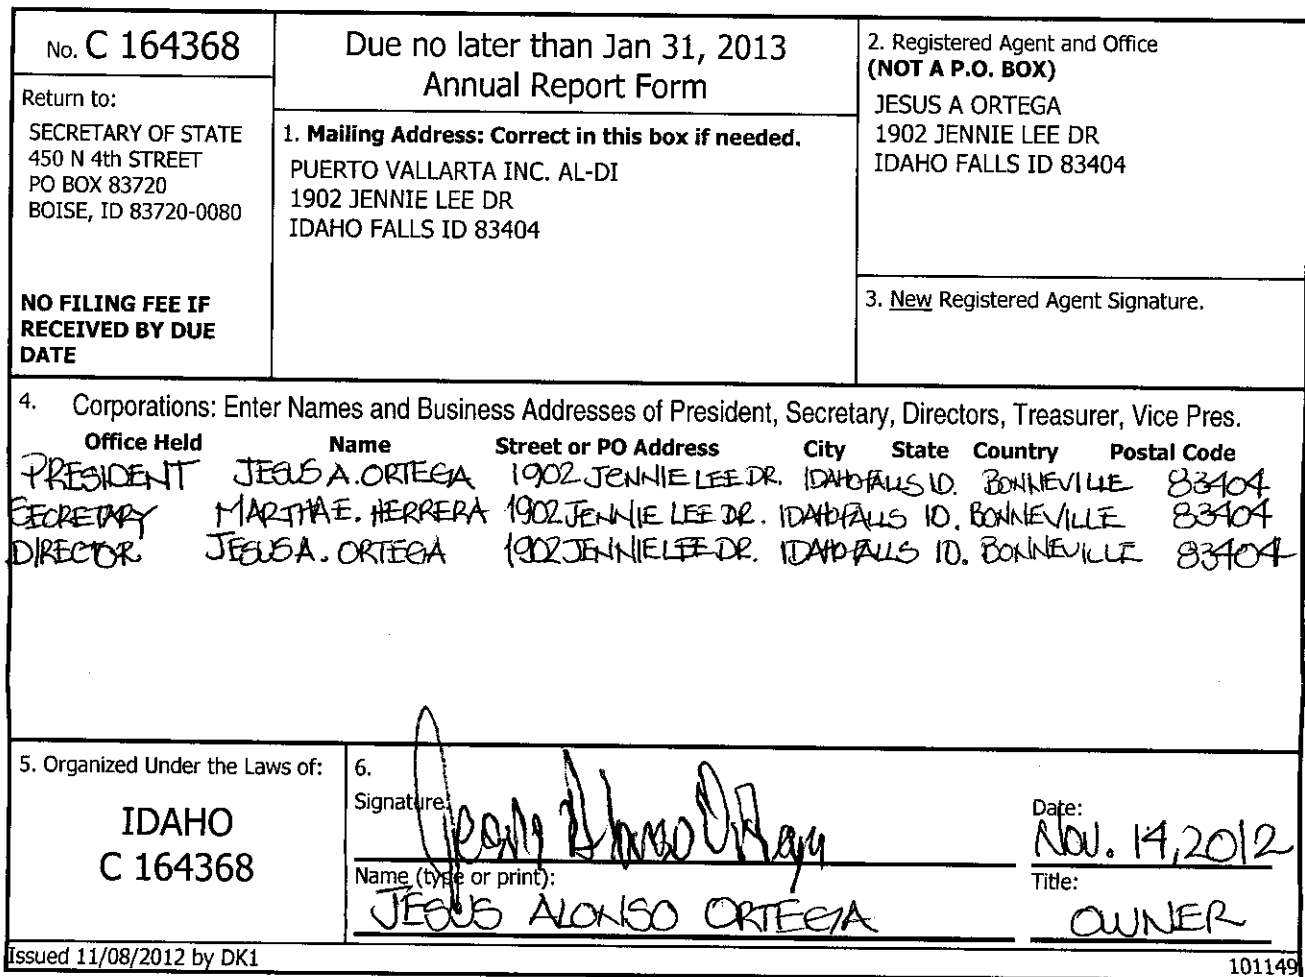 No. C 164368
Return to:
SECRETARY OF STATE
450 N 4th STREET
PO BOX 83720
BOISE, ID 83720-0080
NO FILING FEE IF
RECEIVED BY DUE
DATE
Due no later than Jan 31, 2013
Annual Report Form
1. Mailing Address: Correct in this box if needed.
PUERTO VALLARTA INC. AL-DI
1902 JENNIE LEE DR
IDAHO FALLS ID 83404
2. Registered Agent and Office
(NOT A P.O. BOX)
JESUS A ORTEGA
1902 JENNIE LEE DR
IDAHO FALLS ID 83404
3. New Registered Agent Signature.
4. Corporations: Enter Names and Business Addresses of President, Secretary, Directors, Treasurer, Vice Pres.
Office Held Name Street or PO Address City State Country Postal Code
PRESIDENT JESUS A. ORTEGA 1902 JENNIE LEE DR. IDAHO FALLS ID. BONNEVILLE 83404
SECRETARY MARTHA E. HERRERA 1902 JENNIE LEE DR. IDAHO FALLS ID. BONNEVILLE 83404
DIRECTOR JESUS A. ORTEGA 1902 JENNIE LEE DR. IDAHO FALLS ID. BONNEVILLE 83404
5. Organized Under the Laws of:
IDAHO
C 164368
6.
Signature:
Jesus Alonso Ortega
Date:
Nov. 14, 2012
Name (type or print):
JESUS ALONSO ORTEGA
Title:
OWNER
Issued 11/08/2012 by DK1
101149